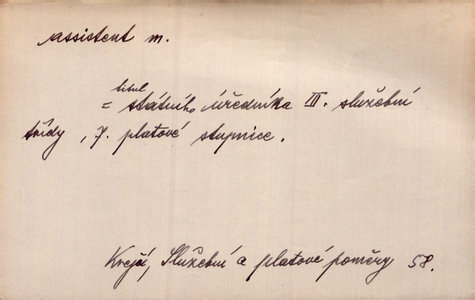 assistent m.
titul
= státního úředníka III. služební
třídy, 7. platové stupnice.
Krejčí, Služební a platové poměry 58.